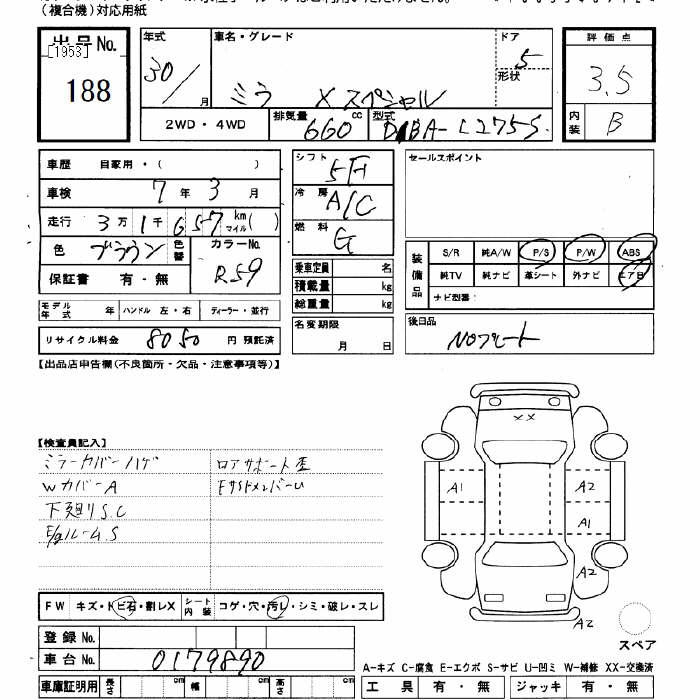 (複合機)対応用紙
出品No.
[1953]
188
年式 30/ 月
車名・グレード ミラ Xスペシャル
ドア 5
形状
2WD・4WD
排気量 660 cc
型式 DBA-L275S
評価点 3.5
内装 B
車歴 自家用・( )
車検 7年 3月
走行 3万 1千 657 km マイル( )
色 ブラウン 色替
カラーNo. R59
保証書 有・無
モデル年式 年 ハンドル 左・右 ディーラー・並行
リサイクル料金 8050 円 預託済
シフト 5F
冷房 A/C
燃料 G
乗車定員 名
積載量 kg
総重量 kg
名変期限 月 日
セールスポイント
装備品 S/R 純A/W P/S P/W ABS
純TV 純ナビ 革シート 外ナビ エアB
ナビ型番:
後日品
NOプレート
【出品店申告欄(不良箇所・欠品・注意事項等)】
【検査員記入】
ミラーカバーハゲ
Wカバー A
下廻りS.C
E/gルーム.S
ロアサポート歪
FサイドメンバーU
FW キズ・トビ石・割レX
シート内装 コゲ・穴・汚レ・シミ・破レ・スレ
登録No.
車台No. 0179890
車庫証明用 長さ cm 幅 cm 高さ cm
XX
A1
A2
A1
A2
A2
スペア
A-キズ C-腐食 E-エクボ S-サビ U-凹ミ W-補修 XX-交換済
工具 有・無 ジャッキ 有・無